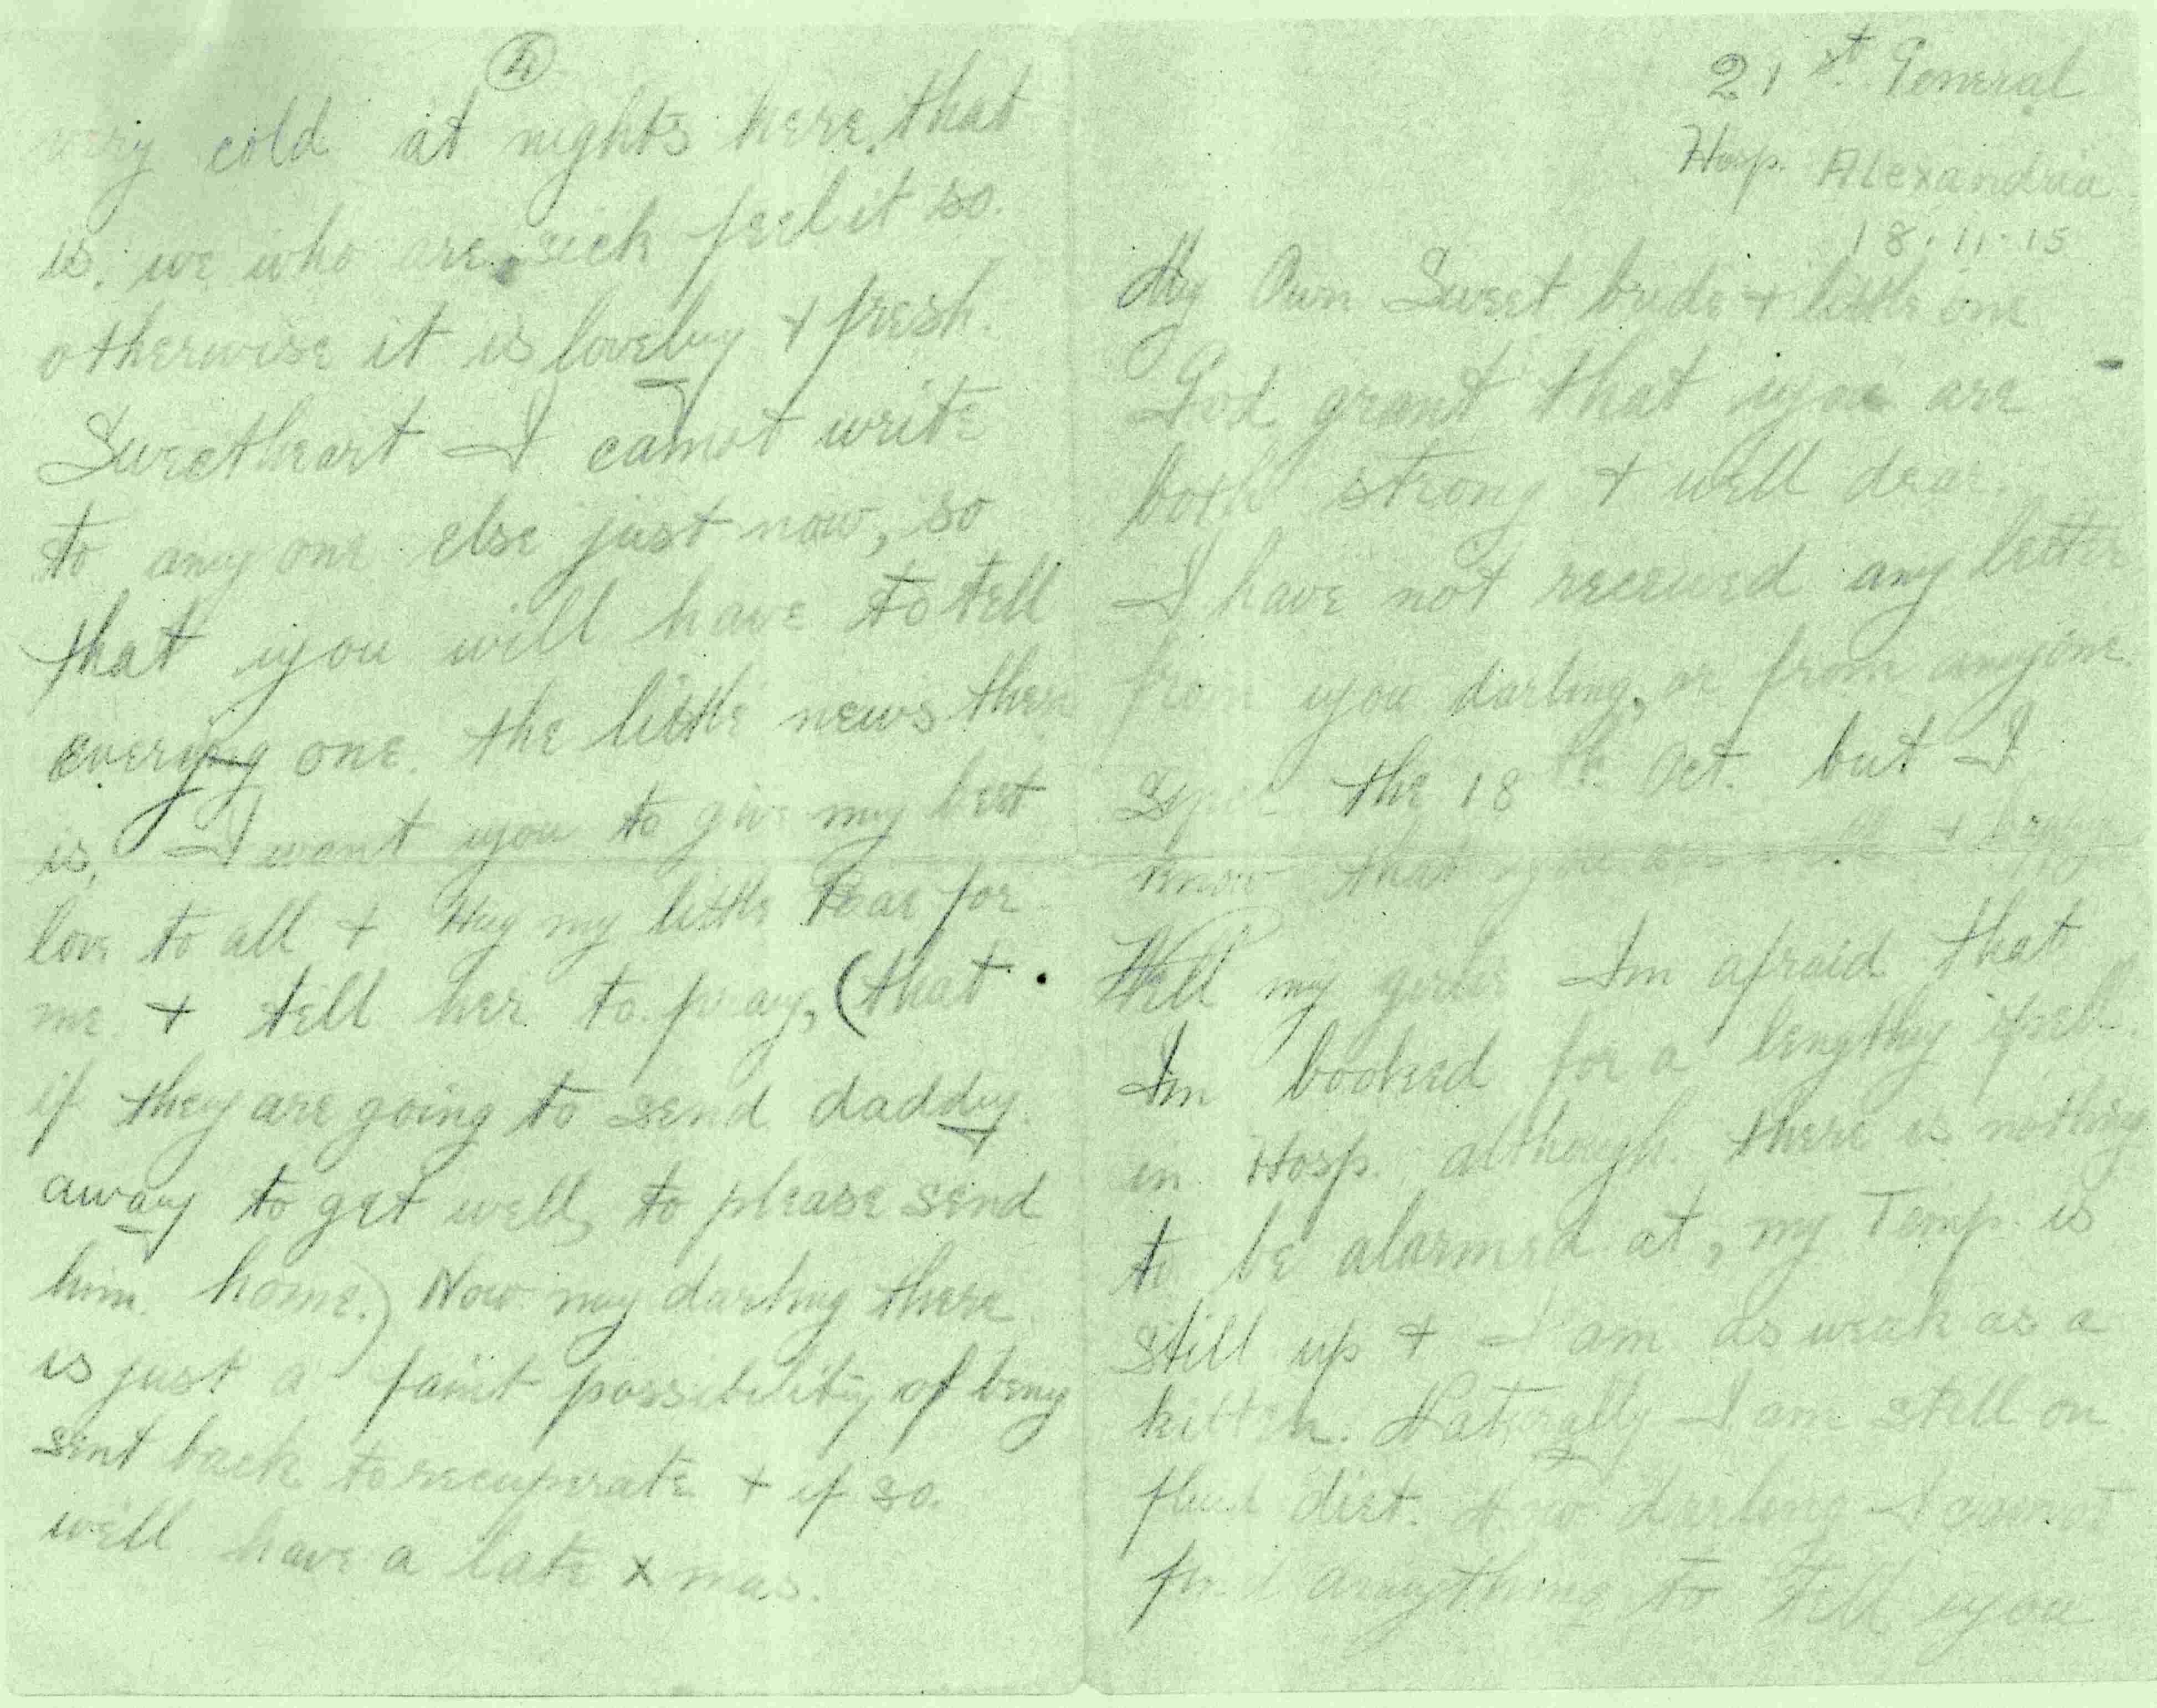 21st General
Hosp. Alexandria
18.11.15
My Own Sweet bride + little one
God grant that you are
both strong + well dear.
I have not received any letter
from you darling, or from anyone
the 18th Oct. but I
know that you are well +
Well my girlie Im afraid that
Im booked for a lengthy spell
in Hosp. although there is nothing
to be alarmed at, my Temp. is
still up + I am as weak as a
kitten. Naturally I am still on
fluid diet. Now darling I cannot
find anything to tell you
4
very cold at nights here, that
is, we who are sick feel it so.
otherwise it is lovely + fresh.
Sweetheart I cannot write
to any one else just now, so
that you will have to tell
every one the little news there
is, I want you to give my best
love to all + Hug my little for
me + tell her to pray, (that
if they are going to send daddy
away to get well, to please send
him home.) Now my darling there
is just a faint possibility of being
sent back to recuperate + if so.
we'll have a late xmas.